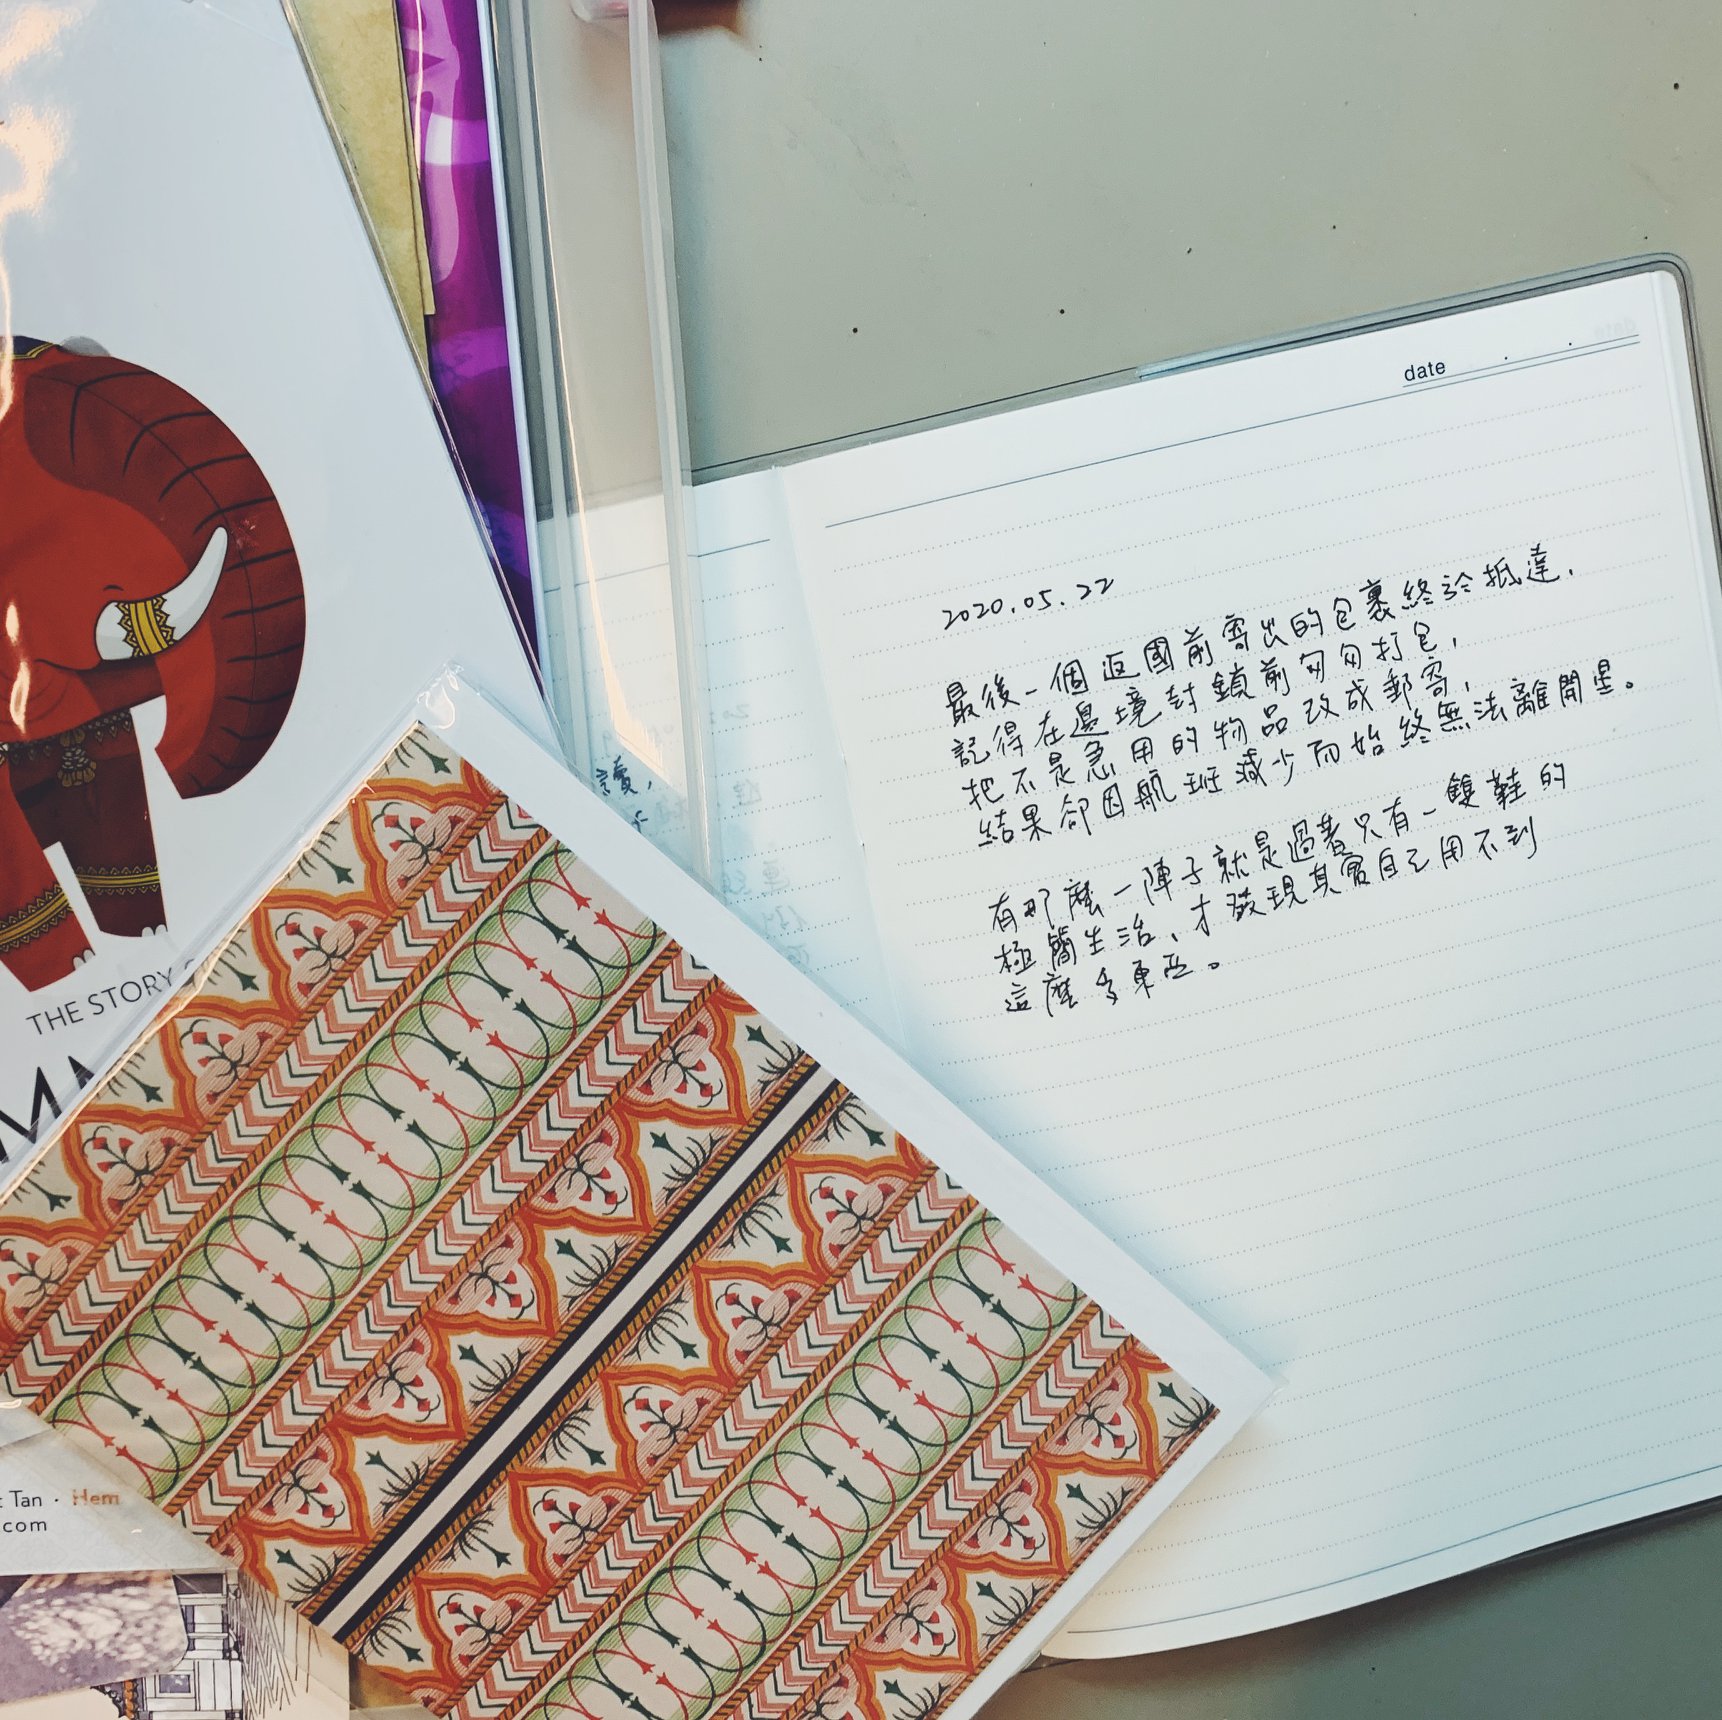 THE STORY
Tan · Hem
.com
date
2020.05.22
最後一個返國前寄出的包裹終於抵達，
記得在邊境封鎖前匆匆打包，
把不是急用的物品改成郵寄，
結果卻因航班減少而始終無法離開星。
有那麼一陣子就是過著只有一雙鞋的
極簡生活、才發現其實自己用不到
這麼多東西。